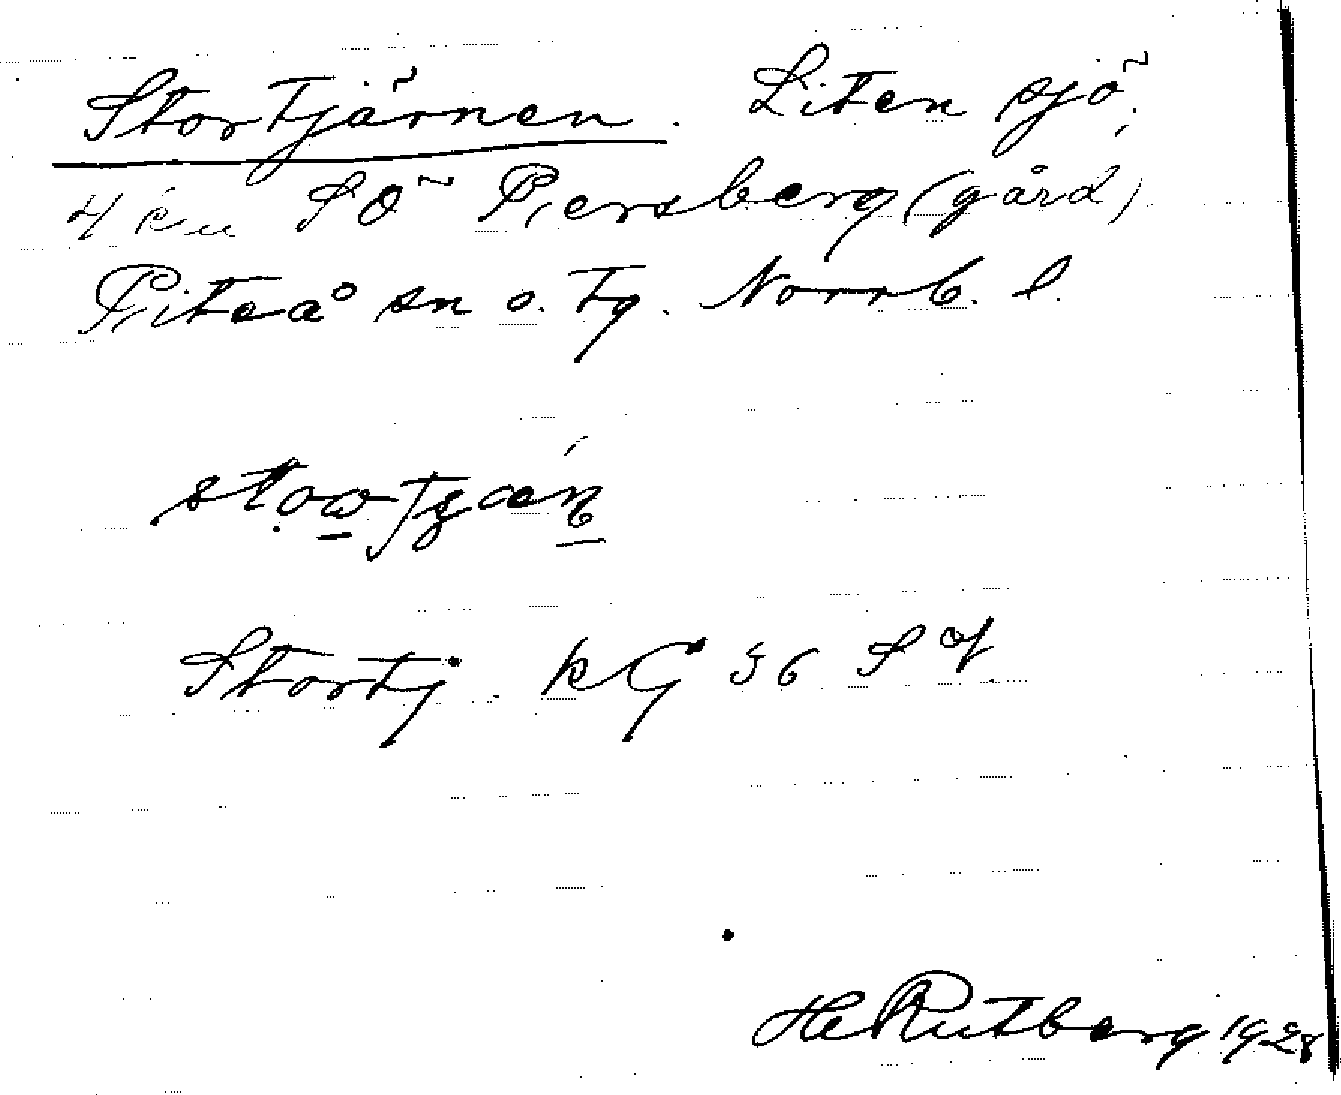 Stortjärnen. Liten sjö,
4 km SÖ Persberg (gård)
Piteå sn o. tg. Norrb. l.
Stortj. kG 36 S of.
HeRutberg 1928